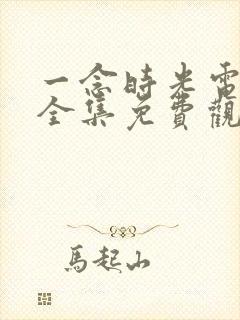 一念時光電
全集免費觀
馬起山